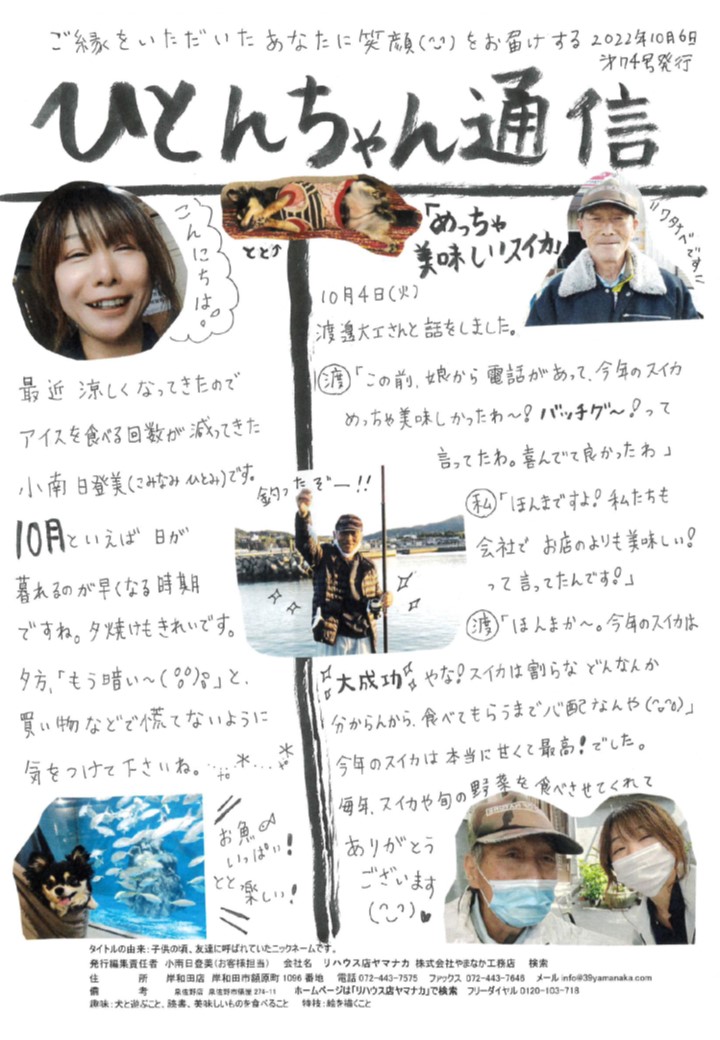 ご縁をいただいた あなたに笑顔(^-^)をお届けする 2022年10月6日
第74号発行
ひとんちゃん通信
こんにちは。
とと↑
「めっちゃ
美味しいスイカ」
ワタナベです!!
最近 涼しくなってきたので
アイスを食べる回数が減ってきた
小南 日登美(こみなみ ひとみ)です。
10月といえば 日が
暮れるのが早くなる時期
ですね。夕焼けもきれいです。
夕方、「もう暗い~」と、
買い物などで慌てないように
気をつけて下さいね。
お魚
いっぱい!
とと 楽しい!
10月4日(火)
渡邉大工さんと話をしました。
渡「この前、娘から電話があって、今年のスイカ
めっちゃ美味しかったわ~!バッチグ~!って
言ってたわ。喜んでて良かったわ」
私「ほんまですよ!私たちも
会社で お店のよりも美味しい!
って言ってたんです!」
釣ったぞー!!
渡「ほんまか~。今年のスイカは
大成功やな!スイカは割らな どんなんか
分からんから、食べてもらうまで心配なんや(^-^)」
今年のスイカは本当に甘くて最高!でした。
毎年、スイカや旬の野菜を食べさせてくれて
ありがとう
ございます
(^-^)♥
タイトルの由来:子供の頃、友達に呼ばれていたニックネームです。
発行編集責任者 小南日登美(お客様担当) 会社名 リハウス店ヤマナカ 株式会社やまなか工務店 検索
住 所 岸和田店 岸和田市額原町1096番地 電話072-443-7575 ファックス 072-443-7646 メールinfo@39yamanaka.com
備 考 泉佐野店 泉佐野市俵屋274-11 ホームページは「リハウス店ヤマナカ」で検索 フリーダイヤル0120-103-718
趣味:犬と遊ぶこと、読書、美味しいものを食べること 特技:絵を描くこと